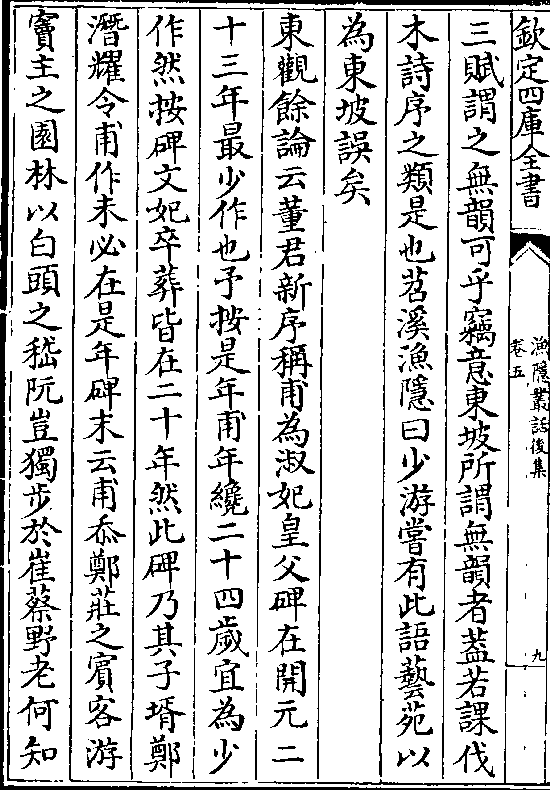 欽定四庫全書
漁隱叢話後集
卷五
九
三賦謂之無韻可乎竊意東坡所謂無韻者葢若課伐
木詩序之類是也苕溪漁隱曰少游嘗有此語藝苑以
為東坡誤矣
東觀餘論云董君新序稱甫為淑妃皇父碑在開元二
十三年最少作也予按是年甫年纔二十四歲宜為少
作然按碑文妃卒葬皆在二十年然此碑乃其子壻鄭
潛耀令甫作未必在是年碑末云甫忝鄭莊之賓客游
竇主之園林以白頭之嵇阮豈獨步於崔蔡野老何知